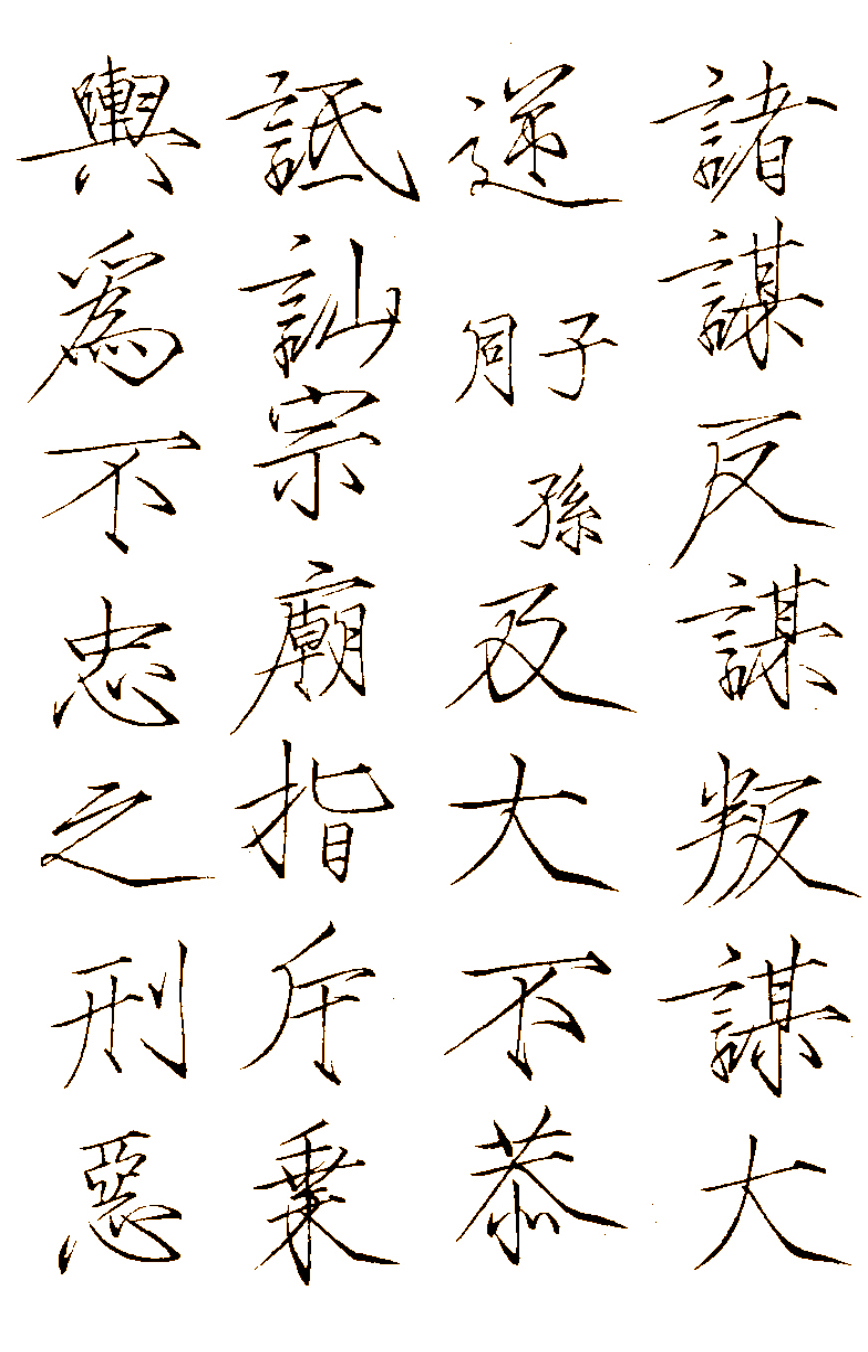 諸謀反謀叛謀大
逆子孫同及大不恭
詆訕宗廟指斥乗
輿爲不忠之刑惡